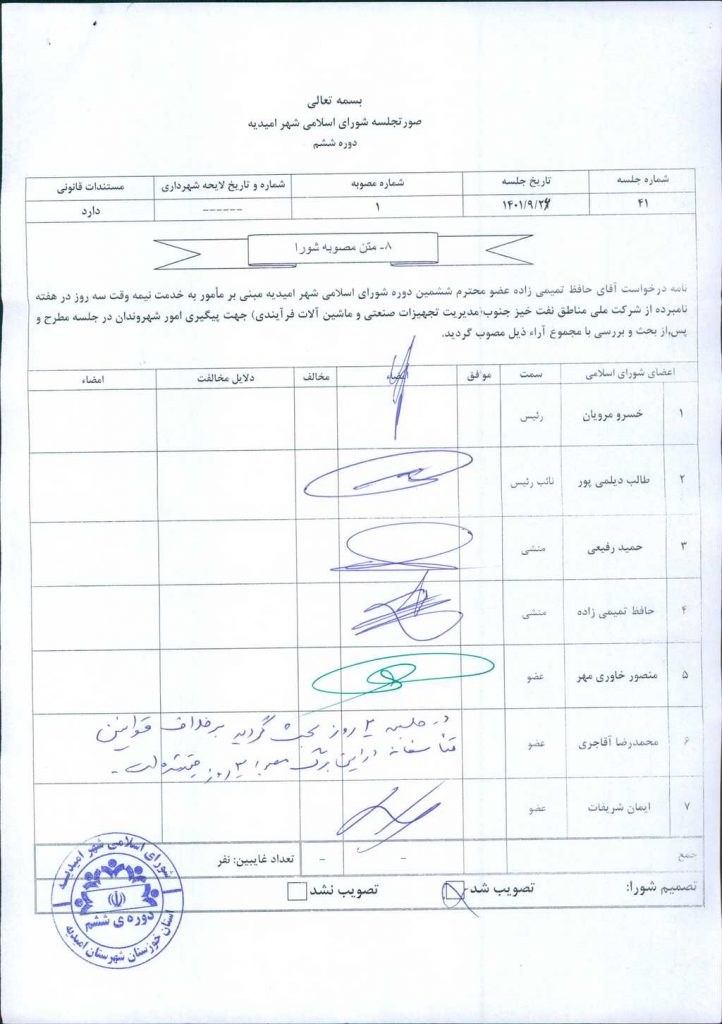 بسمه تعالی
صورتجلسه شورای اسلامی شهر امیدیه
دوره ششم
شماره جلسه تاریخ جلسه شماره مصوبه شماره و تاریخ لایحه شهرداری مستندات قانونی
۴۱ ۱۴۰۱/۹/۲۴ ۱ ------ دارد
۸- متن مصوبه شورا
نامه درخواست آقای حافظ تمیمی زاده عضو محترم ششمین دوره شورای اسلامی شهر امیدیه مبنی بر مأمور به خدمت نیمه وقت سه روز در هفته
نامبرده از شرکت ملی مناطق نفت خیز جنوب(مدیریت تجهیزات صنعتی و ماشین آلات فرآیندی) جهت پیگیری امور شهروندان در جلسه مطرح و
پس از بحث و بررسی با مجموع آراء ذیل مصوب گردید.
اعضای شورای اسلامی سمت موافق امضاء مخالف دلایل مخالفت امضاء
۱ خسرو مرویان رئیس
۲ طالب دیلمی پور نائب رئیس
۳ حمید رفیعی منشی
۴ حافظ تمیمی زاده منشی
۵ منصور خاوری مهر عضو
۶ محمدرضا آقاجری عضو
در جلسه ۲ روز بحث گردید برخلاف قوانین
متأسفانه در این برگ ۳ روز
۷ ایمان شریفات عضو
جمع - - تعداد غایبین: نفر
تصمیم شورا: تصویب شد تصویب نشد
شورای اسلامی شهر امیدیه
دوره ی ششم
استان خوزستان شهرستان امیدیه